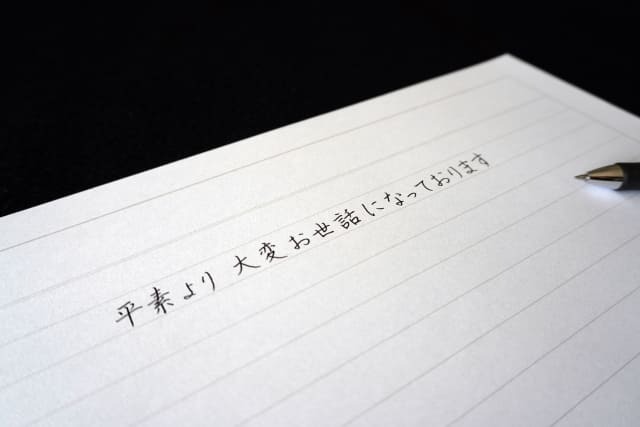 平素より 大変お世話になっております